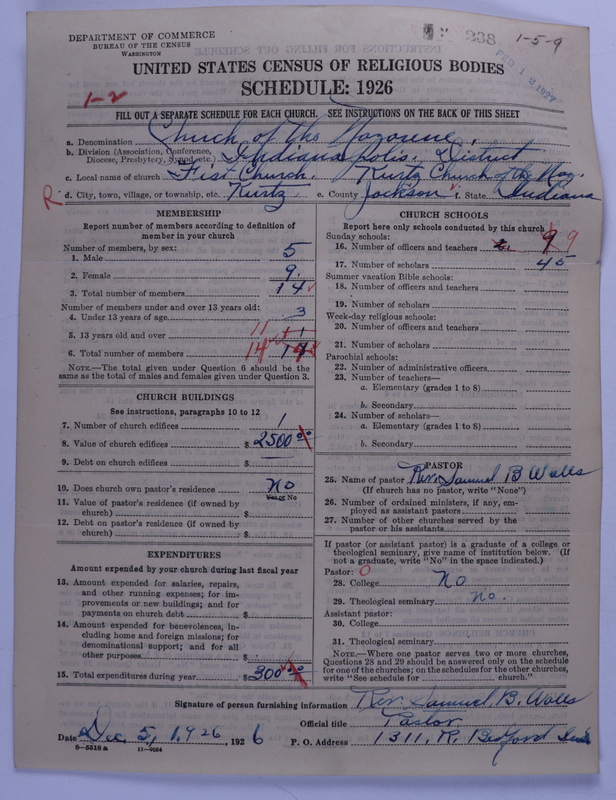 DEPARTMENT OF COMMERCE
BUREAU OF THE CENSUS
WASHINGTON
238
1-5-9
FEB 12 1927
UNITED STATES CENSUS OF RELIGIOUS BODIES
SCHEDULE: 1926
1-2
FILL OUT A SEPARATE SCHEDULE FOR EACH CHURCH. SEE INSTRUCTIONS ON THE BACK OF THIS SHEET
a. Denomination Church of the Nazarene,
b. Division (Association, Conference, Diocese, Presbytery, Synod, etc.) Indianapolis. District
c. Local name of church First Church. Kurtz Church of the Naz.
R d. City, town, village, or township, etc. Kurtz e. County Jackson f. State Indiana
MEMBERSHIP
Report number of members according to definition of member in your church
Number of members, by sex:
1. Male 5
2. Female 9.
3. Total number of members 14
Number of members under and over 13 years old:
4. Under 13 years of age 3
5. 13 years old and over 11 11
6. Total number of members 14
NOTE.—The total given under Question 6 should be
same as the total of males and females given under Question 3.
CHURCH BUILDINGS
See instructions, paragraphs 10 to 12
7. Number of church edifices 1
8. Value of church edifices $2500 00
9. Debt on church edifices $
10. Does church own pastor's residence No
Yes or No
11. Value of pastor's residence (if owned by
church) $
12. Debt on pastor's residence (if owned by
church) $
EXPENDITURES
Amount expended by your church during last fiscal year
13. Amount expended for salaries, repairs,
and other running expenses; for im-
provements or new buildings; and for
payments on church debt $
14. Amount expended for benevolences, in-
cluding home and foreign missions; for
denominational support; and for all
other purposes $
15. Total expenditures during year $300 00
CHURCH SCHOOLS
Report here only schools conducted by this church
Sunday schools:
16. Number of officers and teachers 9 9
17. Number of scholars 45
Summer vacation Bible schools:
18. Number of officers and teachers
19. Number of scholars
Week-day religious schools:
20. Number of officers and teachers
21. Number of scholars
Parochial schools:
22. Number of administrative officers
23. Number of teachers—
a. Elementary (grades 1 to 8)
b. Secondary
24. Number of scholars—
a. Elementary (grades 1 to 8)
b. Secondary
PASTOR
25. Name of pastor Rev. Samuel B Walls
(If church has no pastor, write "None")
26. Number of ordained ministers, if any, em-
ployed as assistant pastors
27. Number of other churches served by the
pastor or his assistants
If pastor (or assistant pastor) is a graduate of a college or
theological seminary, give name of institution below. (If
not a graduate, write "No" in the space indicated.)
Pastor: O
28. College No
29. Theological seminary no.
Assistant pastor:
30. College
31. Theological seminary
NOTE.—Where one pastor serves two or more churches,
Questions 28 and 29 should be answered only on the schedule
for one of the churches; on the schedules for the other churches,
write "See schedule for church."
Signature of person furnishing information Rev. Samuel B. Walls
Official title Pastor
Date Dec. 5, 1926, 1926 P. O. Address 1311, R. Bedford Ind
8—5516 a 11—9034